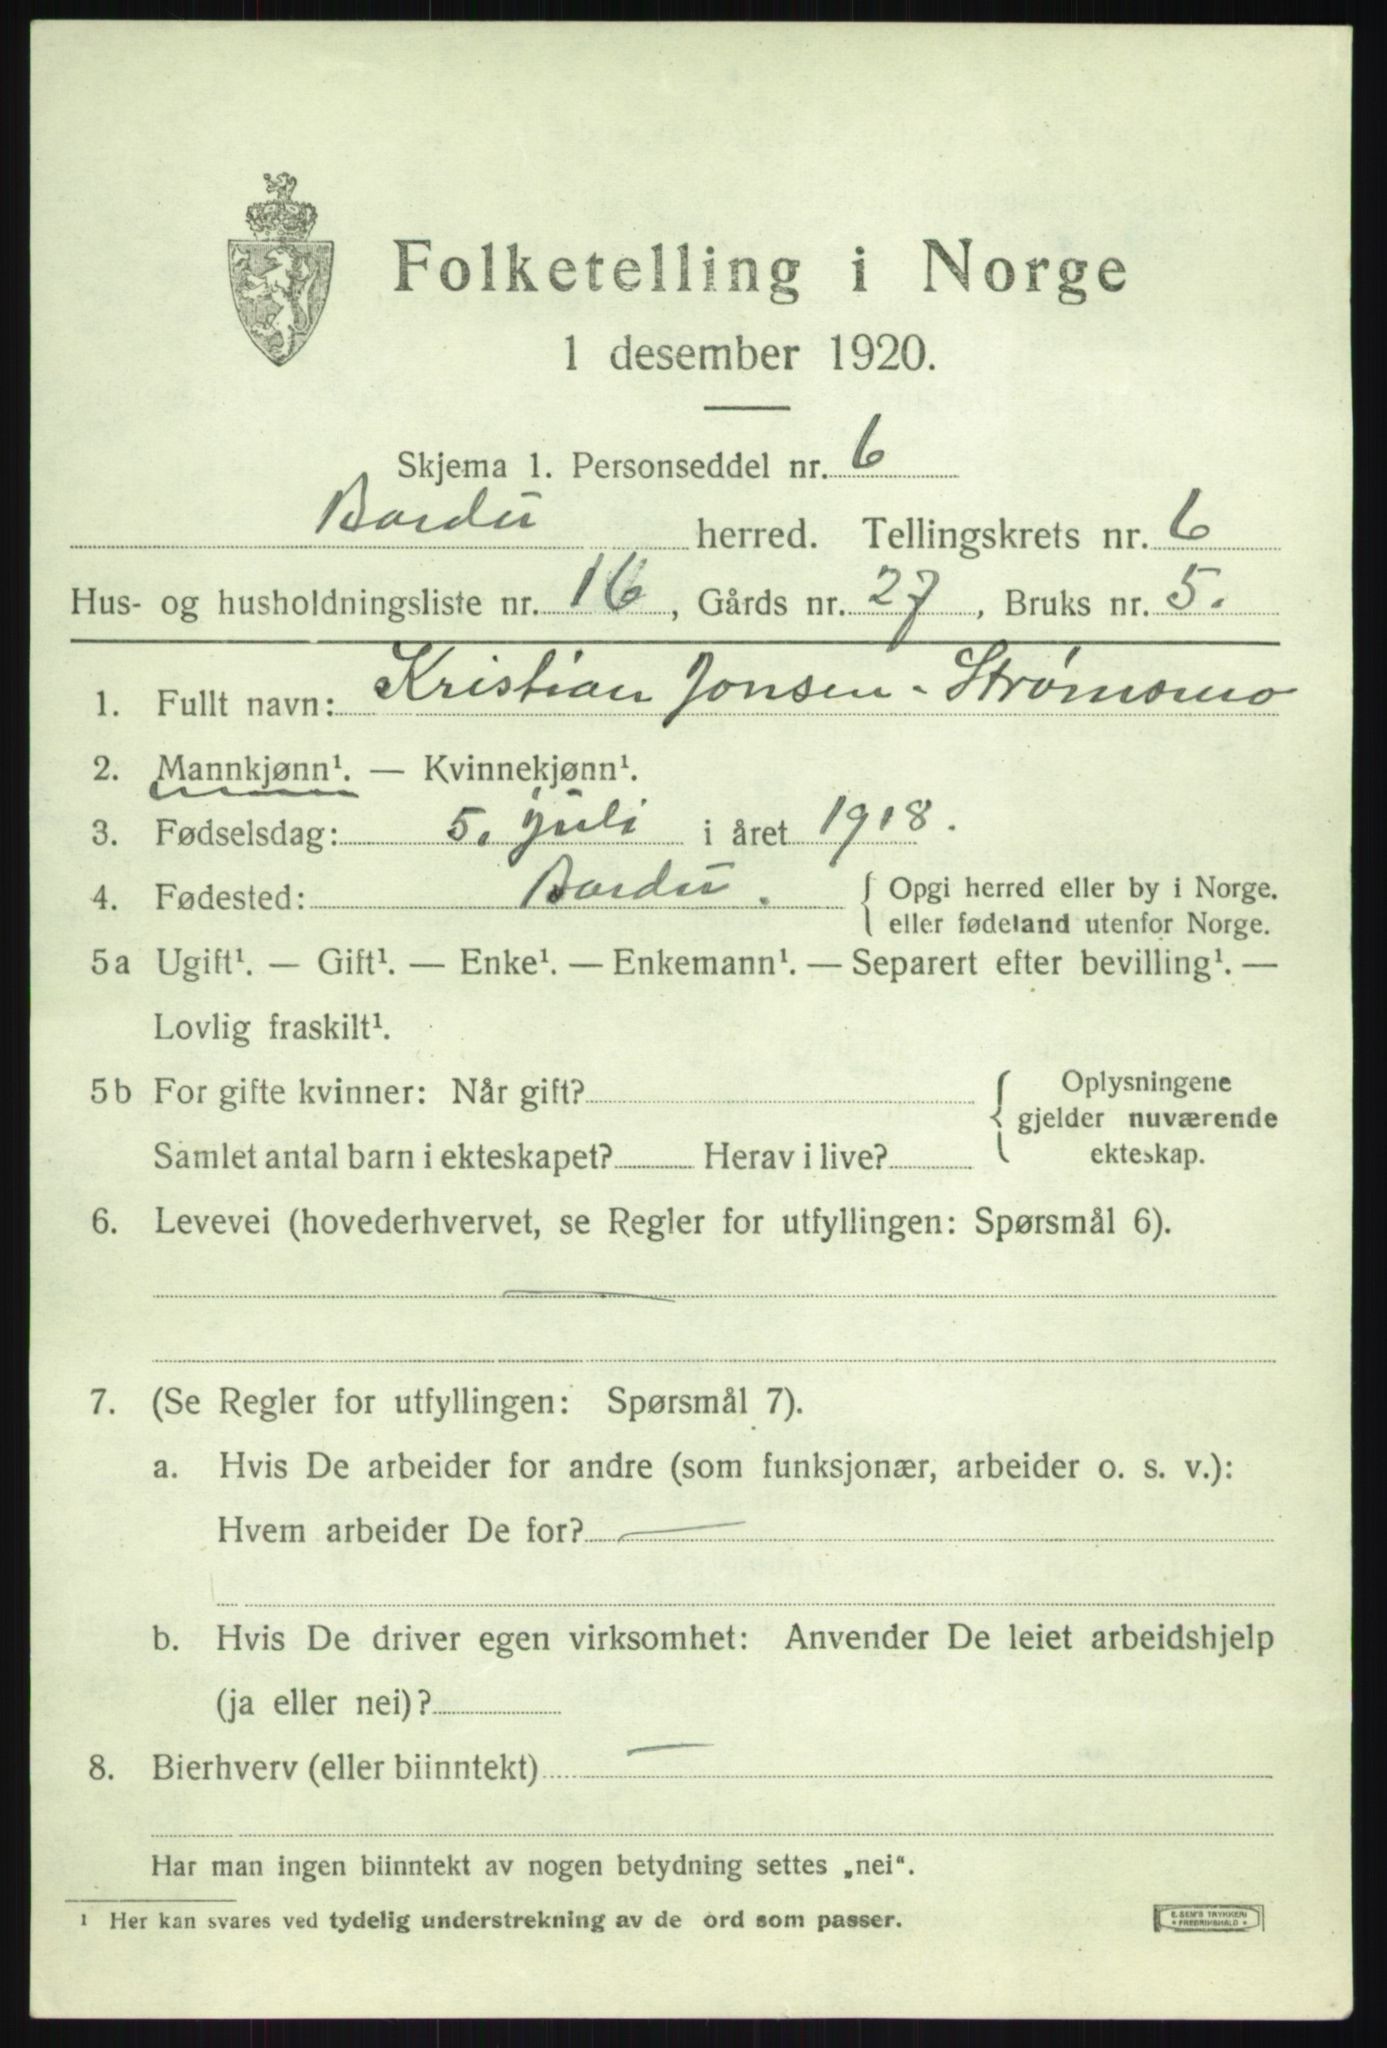 Folketelling i Norge
1 desember 1920.
Skjema 1. Personseddel nr. 6
Bardu herred. Tellingskrets nr. 6
Hus- og husholdningsliste nr. 16, Gårds nr. 27, Bruks nr. 5.
1. Fullt navn: Kristian Jonsen - Strømsmo
2. Mannkjønn¹. — Kvinnekjønn¹.
3. Fødselsdag: 5. juli i året 1918.
4. Fødested: Bardu. { Opgi herred eller by i Norge.
eller fødeland utenfor Norge.
5a Ugift¹. — Gift¹. — Enke¹. — Enkemann¹. — Separert efter bevilling¹. —
Lovlig fraskilt¹.
5b For gifte kvinner: Når gift? { Oplysningene
gjelder nuværende
Samlet antal barn i ekteskapet? Herav i live? ekteskap.
6. Levevei (hovederhvervet, se Regler for utfyllingen: Spørsmål 6).
—
7. (Se Regler for utfyllingen: Spørsmål 7).
a. Hvis De arbeider for andre (som funksjonær, arbeider o. s. v.):
Hvem arbeider De for? —
b. Hvis De driver egen virksomhet: Anvender De leiet arbeidshjelp
(ja eller nei)?
8. Bierhverv (eller biinntekt) —
Har man ingen biinntekt av nogen betydning settes „nei“.
¹ Her kan svares ved tydelig understrekning av de ord som passer.
E. SEM'S TRYKKERI
* FREDRIKSHALD *